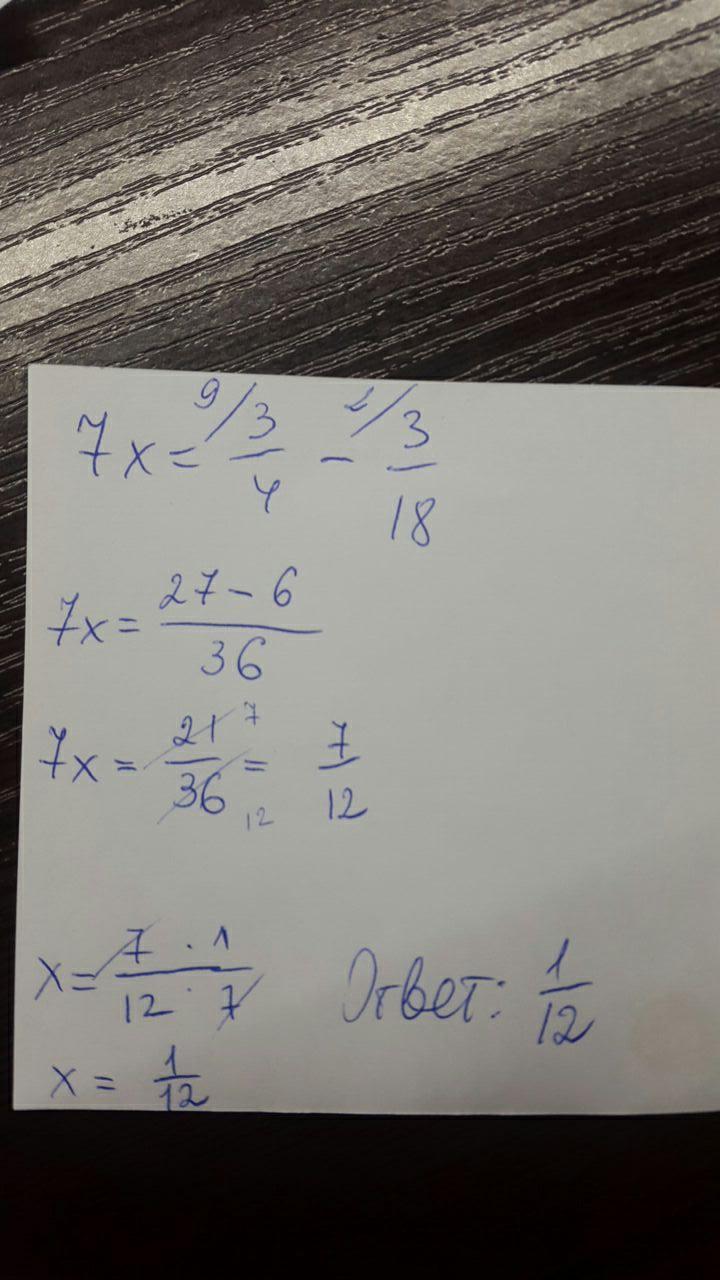 7x = 9/3/4 - 2/3/18
7x = 27 - 6/36
7x = 21 7/36 12 = 7/12
x = 7 · 1/12 · 7 Ответ: 1/12
x = 1/12